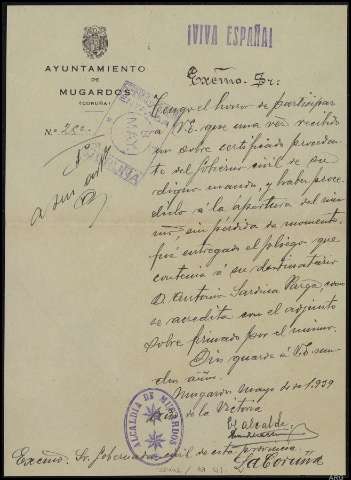 ¡VIVA ESPAÑA!
AYUNTAMIENTO
DE
MUGARDOS
(CORUÑA)
Excmo. Sr:
Tengo el honor de participar
á V.E. que una vez recibido
un sobre certificado proceden-
te del Gobierno civil de su
digno mando, y haber proce-
dido á la apertura del mis-
mo, sin pérdida de momento
fué entregado el pliego que
contenia á su destinatario
D. Antonio Sardina Parga, como
se acredita con el adjunto
sobre firmado por el mismo.
Dios guarde á V.E. mu-
chos años.
Mugardos mayo de 1.939
Año de la Victoria
El alcalde
ALCALDIA DE MUGARDOS
Excmo. Sr. Gobernador civil de esta provincia
La Coruña